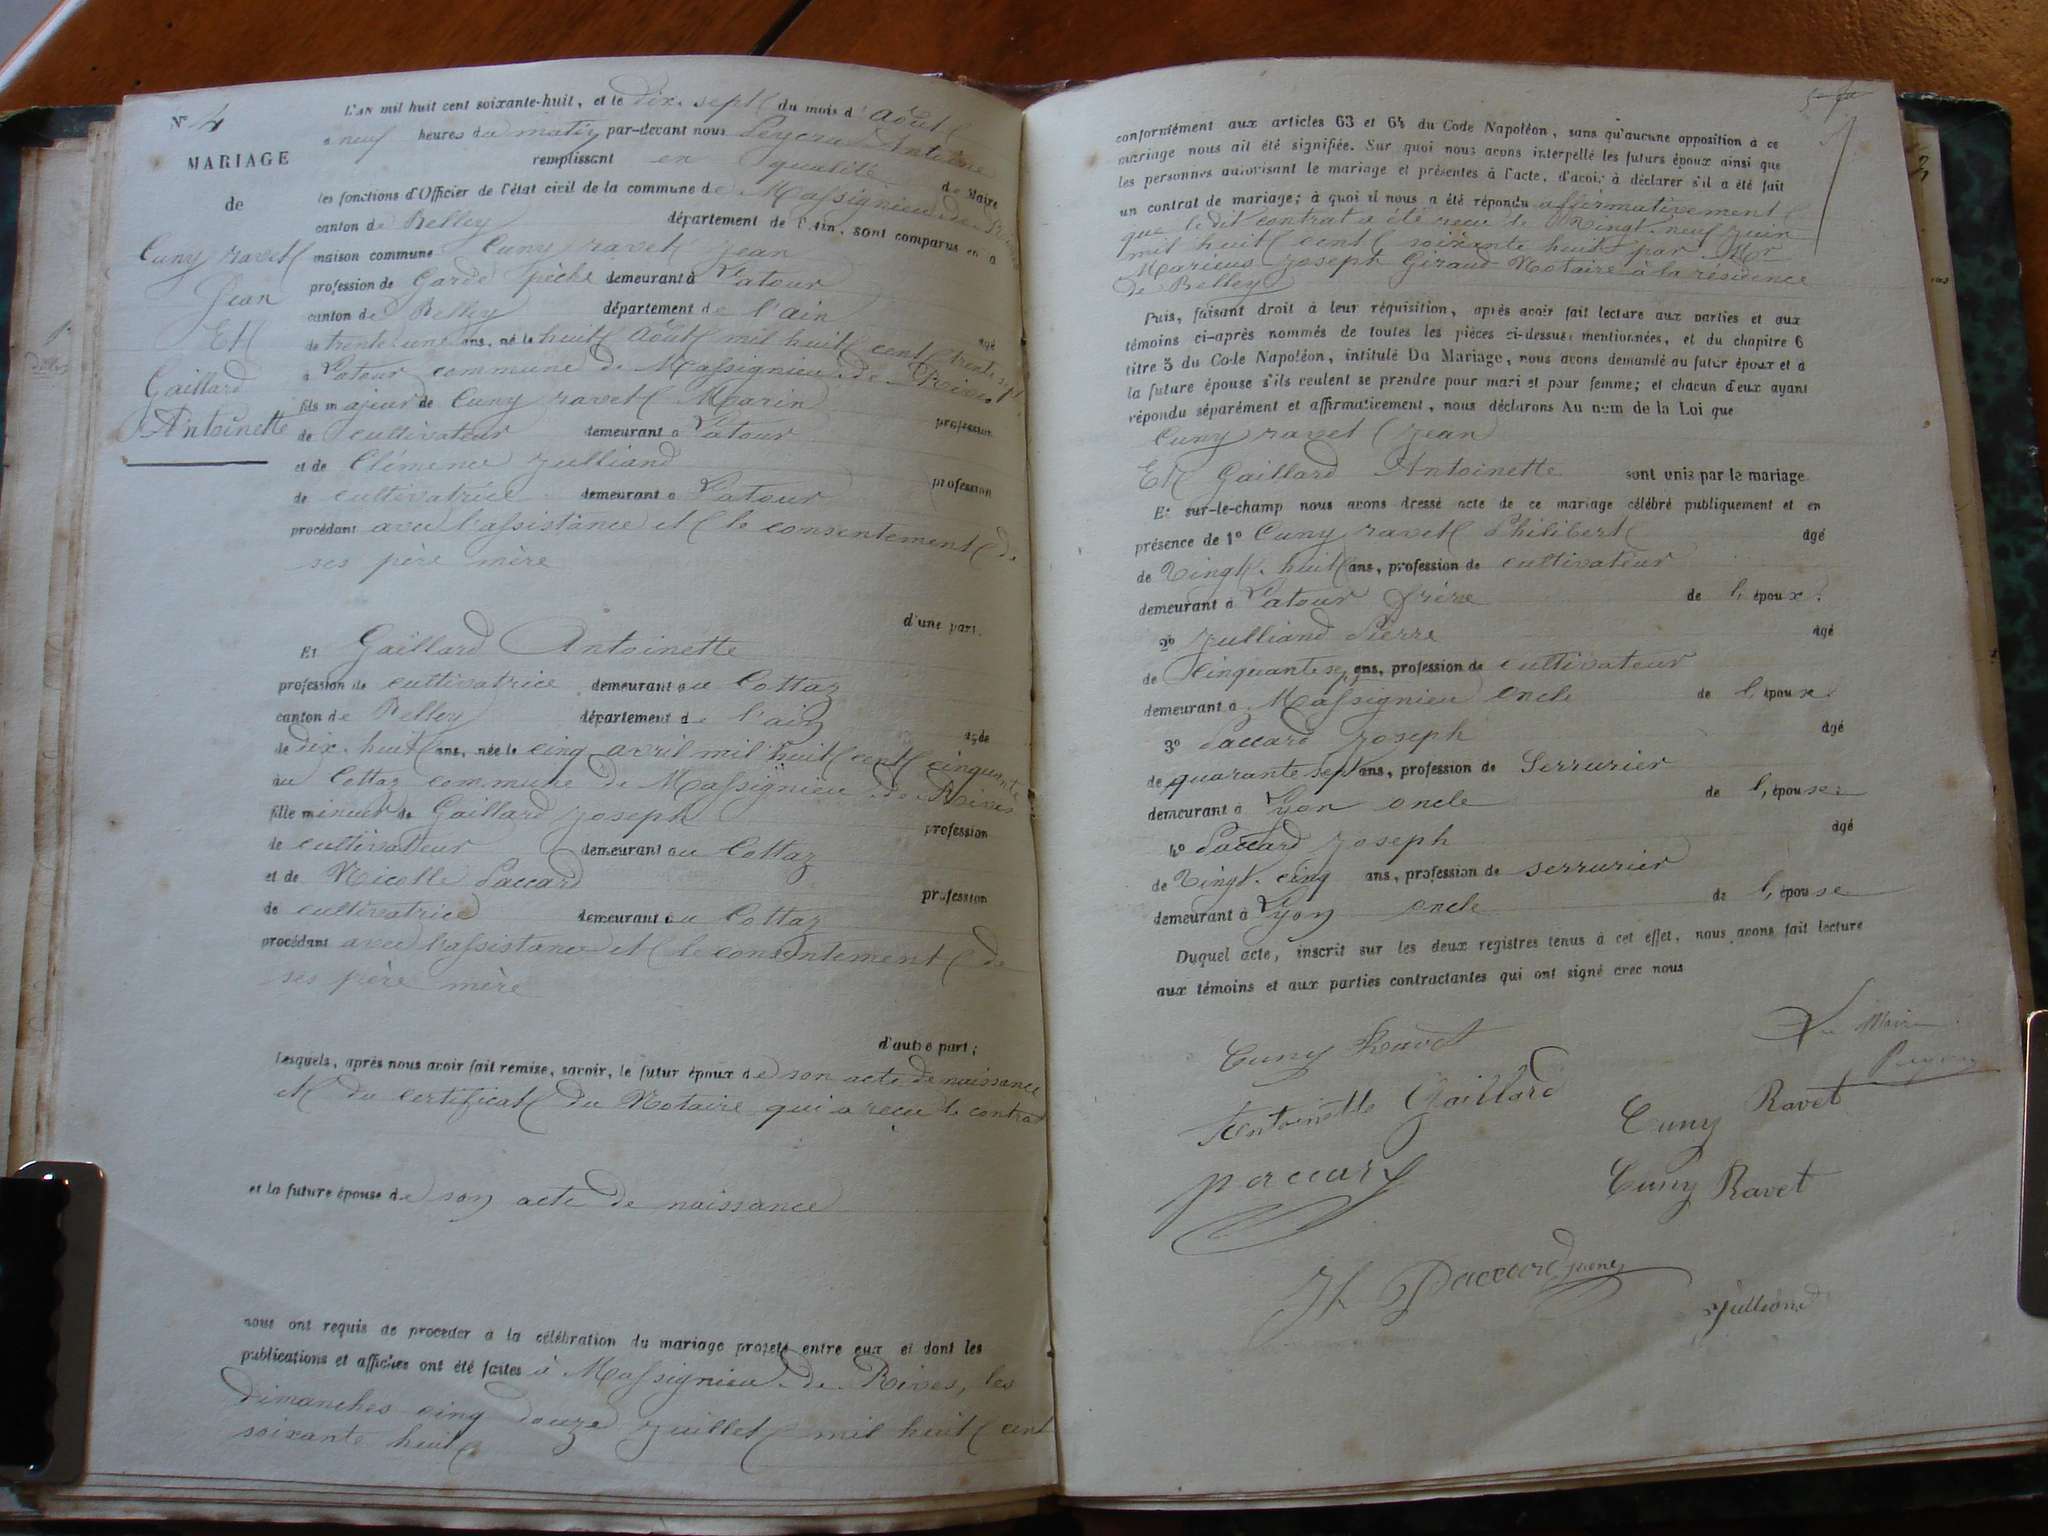 N° 4
MARIAGE
de
Cuny ravet
Jean
Et
Gaillard
Antoinette
L'AN mil huit cent soixante-huit, et le dix-sept du mois d'Août
a neuf heures du matin par-devant nous Antoine
remplissant en qualité de Maire
les fonctions d'Officier de l'état civil de la commune de Massignieu de Rives
canton de Belley département de l'Ain, sont comparus en a
maison commune Cuny ravet Jean
profession de Garde pêche demeurant à Latour
canton de Belley département de l'ain
âgé
de trente-une ans, né le huit Août mil huit cent trente sept
a Latour commune de Massignieu de Rives
fils majeur de Cuny ravet Marin
profession
de cultivateur demeurant a Latour
et de Clémence Julliand
profession
de cultivatrice demeurant a Latour
procédant avec l'assistance et le consentement de
ses père mère
d'une part.
Et Gaillard Antoinette
profession de cultivatrice demeurant au Cottaz
canton de Belley département de l'ain
âgée
de dix-huit ans, née le cinq avril mil huit cent cinquante
au Cottaz commune de Massignieu de Rives
fille mineur de Gaillard Joseph
profession
de cultivatteur demeurant au Cottaz
et de Nicolle Paccard
profession
de cultivatrice demeurant au Cottaz
procédant avec l'assistance et le consentement de
ses père mère
d'autre part;
Lesquels, après nous avoir fait remise, savoir, le futur époux de son acte de naissance
et du certificat du Notaire qui a recu le contrat
et la future épouse de son acte de naissance
nous ont requis de procéder à la célébration du mariage projeté entre eux et dont les
publications et affiches ont été faites à Massignieu-de-Rives, les
dimanches cinq douze juillet mil huit cent
soixante huit
conformément aux articles 63 et 64 du Code Napoléon, sans qu'aucune opposition à ce
mariage nous ait été signifiée. Sur quoi nous avons interpellé les futurs époux ainsi que
les personnes autorisant le mariage et présentes à l'acte, d'avoir à déclarer s'il a été fait
un contrat de mariage; à quoi il nous a été répondu affirmativement
que le dit contrat a été recu le Vingt-neuf juin
mil huit cent soixante huit par Mr
Marieus Joseph Giraud Notaire à la résidence
de Belley
Puis, faisant droit à leur réquisition, après avoir fait lecture aux parties et aux
témoins ci-après nommés de toutes les pièces ci-dessus mentionnées, et du chapitre 6
titre 5 du Code Napoléon, intitulé Du Mariage, nous avons demandé au futur époux et à
la future épouse s'ils veulent se prendre pour mari et pour femme; et chacun d'eux ayant
répondu séparément et affirmativement, nous déclarons Au nom de la Loi que
Cuny ravet Jean
Et Gaillard Antoinette sont unis par le mariage
Et sur-le-champ nous avons dressé acte de ce mariage célébré publiquement et en
présence de 1° Cuny ravet Philibert âgé
de Vingt-huit ans, profession de cultivateur
demeurant à Latour frère de l'époux.
2° Julliand Pierre âgé
de cinquante ans, profession de cultivateur
demeurant à Massignieu oncle de l'épouse
3° Paccard Joseph âgé
de quarante sept ans, profession de Serrurier
demeurant à Lyon oncle de l'épouse
4° Paccard Joseph âgé
de Vingt-cinq ans, profession de serrurier
demeurant à Lyon oncle de l'épouse
Duquel acte, inscrit sur les deux registres tenus à cet effet, nous avons fait lecture
aux témoins et aux parties contractantes qui ont signé avec nous
Cuny Ravet
Le Maire
Antoinette Gaillard
Cuny Ravet
paccard
Cuny Ravet
Jh Paccard jeune
Julliand